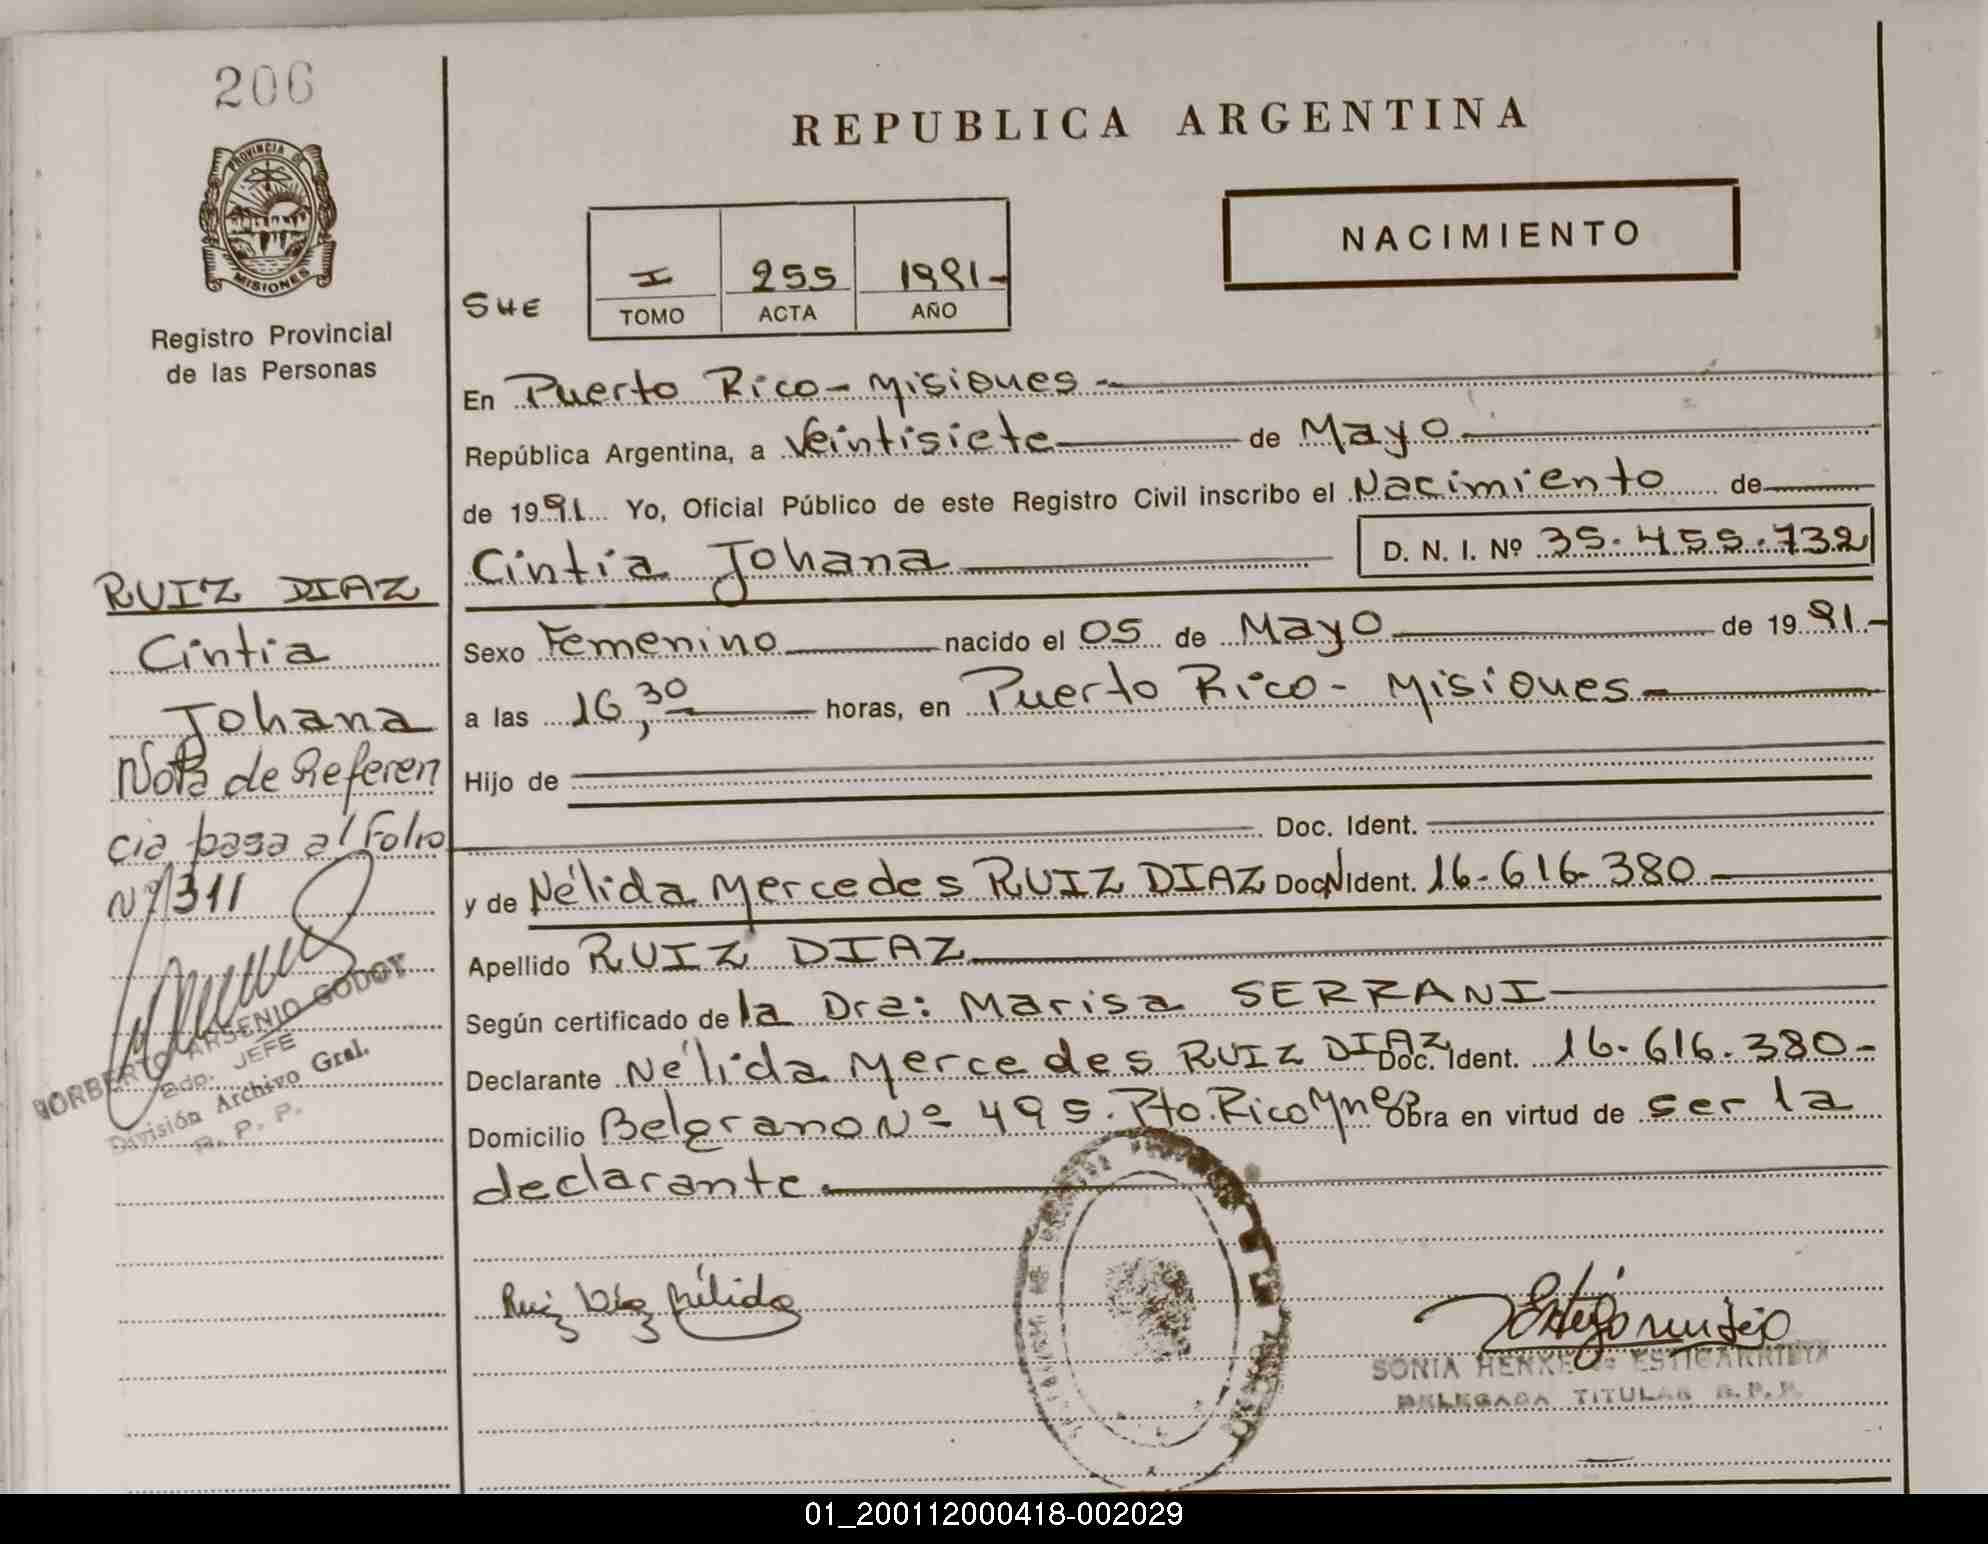 206
PROVINCIA DE
MISIONES
Registro Provincial
de las Personas
REPUBLICA ARGENTINA
NACIMIENTO
SHE
I 255 1991-
TOMO ACTA AÑO
En Puerto Rico - Misiones -
República Argentina, a Veintisiete de Mayo
de 1991 Yo, Oficial Público de este Registro Civil inscribo el Nacimiento de
Cintia Johana D. N. I. Nº 35.455.732
Sexo Femenino nacido el 05 de Mayo de 1991.-
a las 16,30 horas, en Puerto Rico - Misiones -
Hijo de
Doc. Ident.
y de Nélida Mercedes RUIZ DIAZ Doc. Ident. 16.616.380 -
Apellido RUIZ DIAZ
Según certificado de la Dra: Marisa SERRANI
Declarante Nélida Mercedes RUIZ DIAZ Doc. Ident. 16.616.380-
Domicilio Belgrano Nº 495. Pto. Rico Mnes Obra en virtud de ser la
declarante.
RUIZ DIAZ
Cintia
Johana
Nota de Referen
cia pasa al Folio
Nº 311
NORBERTO ARSENIO GODOY
Dpto. JEFE
División Archivo Gral.
R. P. P.
Ruiz Díaz Nélida
SONIA HENKE de ESTIGARRIBIA
DELEGADA TITULAR R.P.P.
01_200112000418-002029